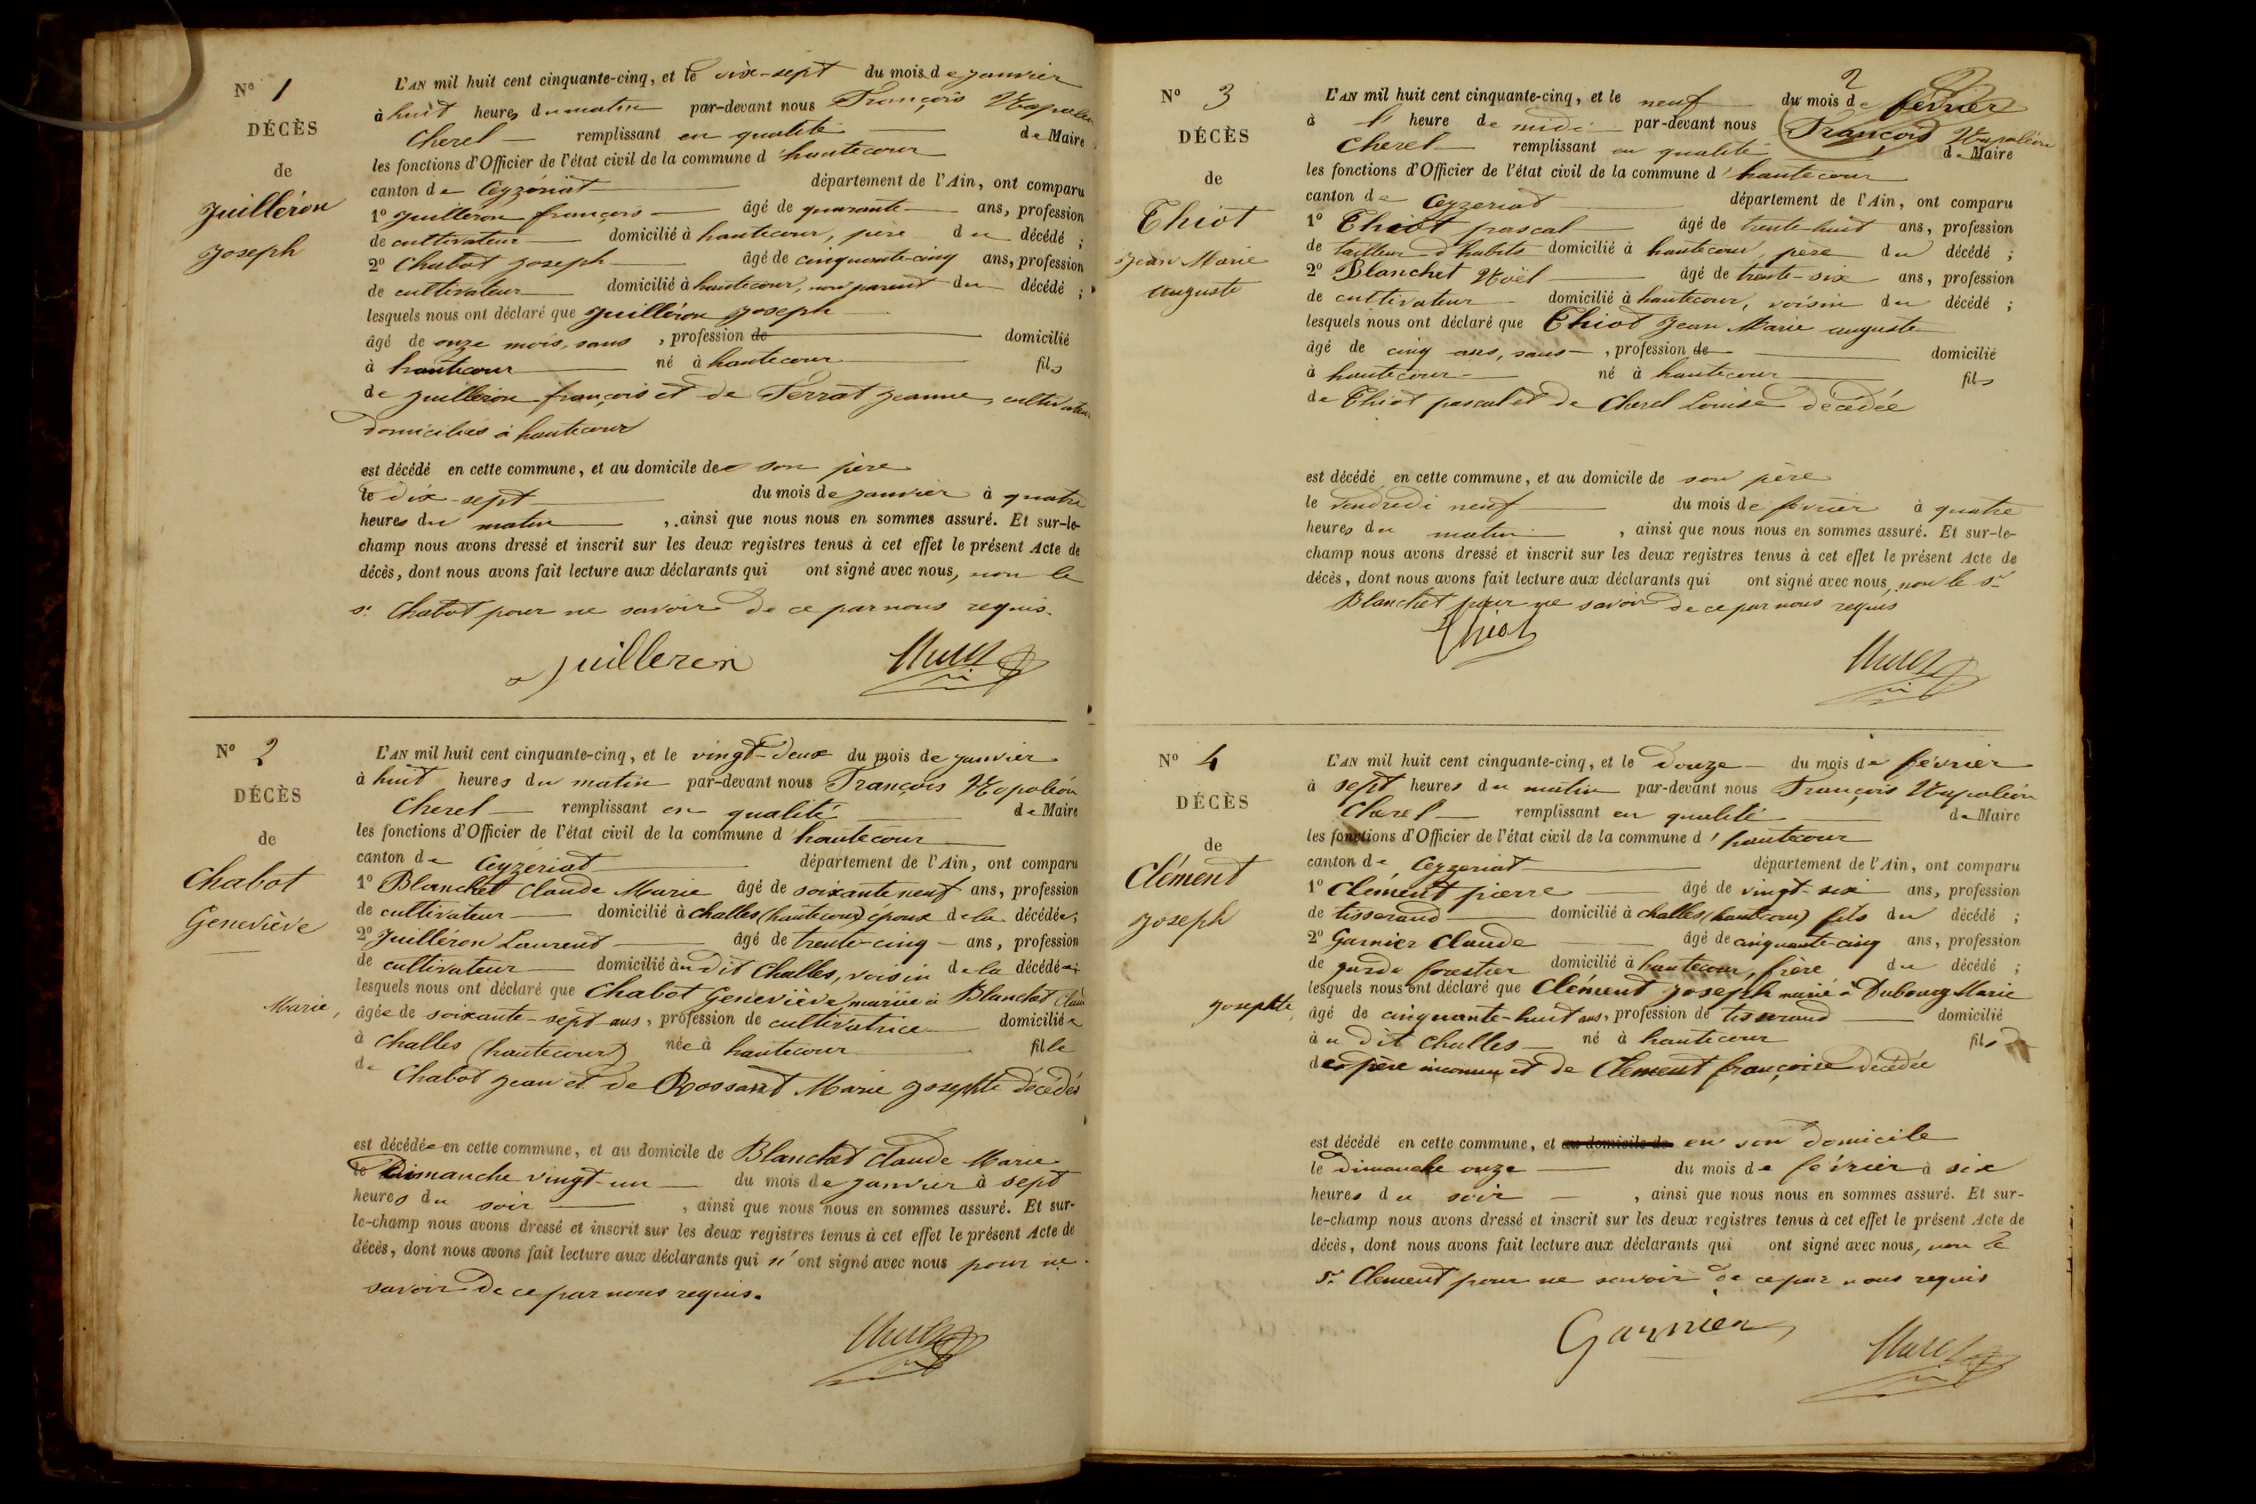 N° 1
DÉCÈS
de
Juilléron
Joseph
L'AN mil huit cent cinquante-cinq, et le dix-sept du mois de janvier
à huit heures du matin par-devant nous François Napoléon
Cherel remplissant en qualité de Maire
les fonctions d'Officier de l'état civil de la commune d'hautecour
canton de Ceyzériat département de l'Ain, ont comparu
1° Juilleron françois âgé de quarante ans, profession
de cultivateur domicilié à hautecour, père du décédé ;
2° Chabot Joseph âgé de cinquante-cinq ans, profession
de cultivateur domicilié à hautecour, non parent du décédé ;
lesquels nous ont déclaré que Juilléron Joseph
âgé de onze mois, sans , profession de domicilié
à hautecour né à hautecour fils
de Juilleron françois et de Ferrat Jeanne, cultivateurs
domiciliés à hautecour
est décédé en cette commune, et au domicile de son père
le dix-sept du mois de janvier à quatre
heures du matin , ainsi que nous nous en sommes assuré. Et sur-le-
champ nous avons dressé et inscrit sur les deux registres tenus à cet effet le présent Acte de
décès, dont nous avons fait lecture aux déclarants qui ont signé avec nous, non le
sr Chabot pour ne savoir de ce par nous requis.
Juilleron
N° 2
DÉCÈS
de
Chabot
Geneviève
L'AN mil huit cent cinquante-cinq, et le vingt-deux du mois de janvier
à huit heures du matin par-devant nous François Napoléon
Cherel remplissant en qualité de Maire
les fonctions d'Officier de l'état civil de la commune d'hautecour
canton de Ceyzériat département de l'Ain, ont comparu
1° Blanchet Claude Marie âgé de soixante neuf ans, profession
de cultivateur domicilié à challes (hautecour) époux de la décédée ;
2° Juilléron Laurent âgé de trente-cinq ans, profession
de cultivateur domicilié au dit Challes, voisin de la décédée ;
lesquels nous ont déclaré que Chabot Geneviève mariée à Blanchet Claude
Marie, âgée de soixante-sept ans, profession de cultivatrice domiciliée
à Challes (hautecour) née à hautecour fille
de Chabot Jean et de Rossant Marie Josephte décédés
est décédée en cette commune, et au domicile de Blanchet Claude Marie
le Dimanche vingt-un du mois de janvier à sept
heures du soir , ainsi que nous nous en sommes assuré. Et sur-
le-champ nous avons dressé et inscrit sur les deux registres tenus à cet effet le présent Acte de
décès, dont nous avons fait lecture aux déclarants qui n'ont signé avec nous pour ne
savoir de ce par nous requis.
2
N° 3
DÉCÈS
de
Thiot
Jean Marie
auguste
L'AN mil huit cent cinquante-cinq, et le neuf du mois de février
à l' heure de midi par-devant nous François Napoléon
Cherel remplissant en qualité de Maire
les fonctions d'Officier de l'état civil de la commune d'hautecour
canton de Ceyzeriat département de l'Ain, ont comparu
1° Thiot pascal âgé de trente-huit ans, profession
de tailleur d'habits domicilié à hautecour, père du décédé ;
2° Blanchet Noël âgé de trente-six ans, profession
de cultivateur domicilié à hautecour, voisin du décédé ;
lesquels nous ont déclaré que Thiot Jean Marie auguste
âgé de cinq ans, sans , profession de domicilié
à hautecour né à hautecour fils
de Thiot pascal et de Cherel Louise décédée
est décédé en cette commune, et au domicile de son père
le vendredi neuf du mois de février à quatre
heures du matin , ainsi que nous nous en sommes assuré. Et sur-le-
champ nous avons dressé et inscrit sur les deux registres tenus à cet effet le présent Acte de
décès, dont nous avons fait lecture aux déclarants qui ont signé avec nous, non le sr
Blanchet pour ne savoir de ce par nous requis
Thiot
N° 4
DÉCÈS
de
Clément
Joseph
L'AN mil huit cent cinquante-cinq, et le douze du mois de février
à sept heures du matin par-devant nous François Napoléon
Cherel remplissant en qualité de Maire
les fonctions d'Officier de l'état civil de la commune d'hautecour
canton de Ceyzeriat département de l'Ain, ont comparu
1° Clément pierre âgé de vingt-six ans, profession
de tisserand domicilié à challes (hautecour) fils du décédé ;
2° Garnier Claude âgé de cinquante-cinq ans, profession
de garde forestier domicilié à hautecour, frère du décédé ;
lesquels nous ont déclaré que Clément Joseph marié à Dubourg Marie
Josephte, âgé de cinquante-huit ans, profession de tisserand domicilié
à u dit challes né à hautecour fils
de père inconnu et de Clément françoise décédée
est décédé en cette commune, et au domicile de en son domicile
le dimanche onze du mois de février à six
heures du soir , ainsi que nous nous en sommes assuré. Et sur-
le-champ nous avons dressé et inscrit sur les deux registres tenus à cet effet le présent Acte de
décès, dont nous avons fait lecture aux déclarants qui ont signé avec nous, non le
sr Clement pour ne savoir de ce par nous requis
Garnier